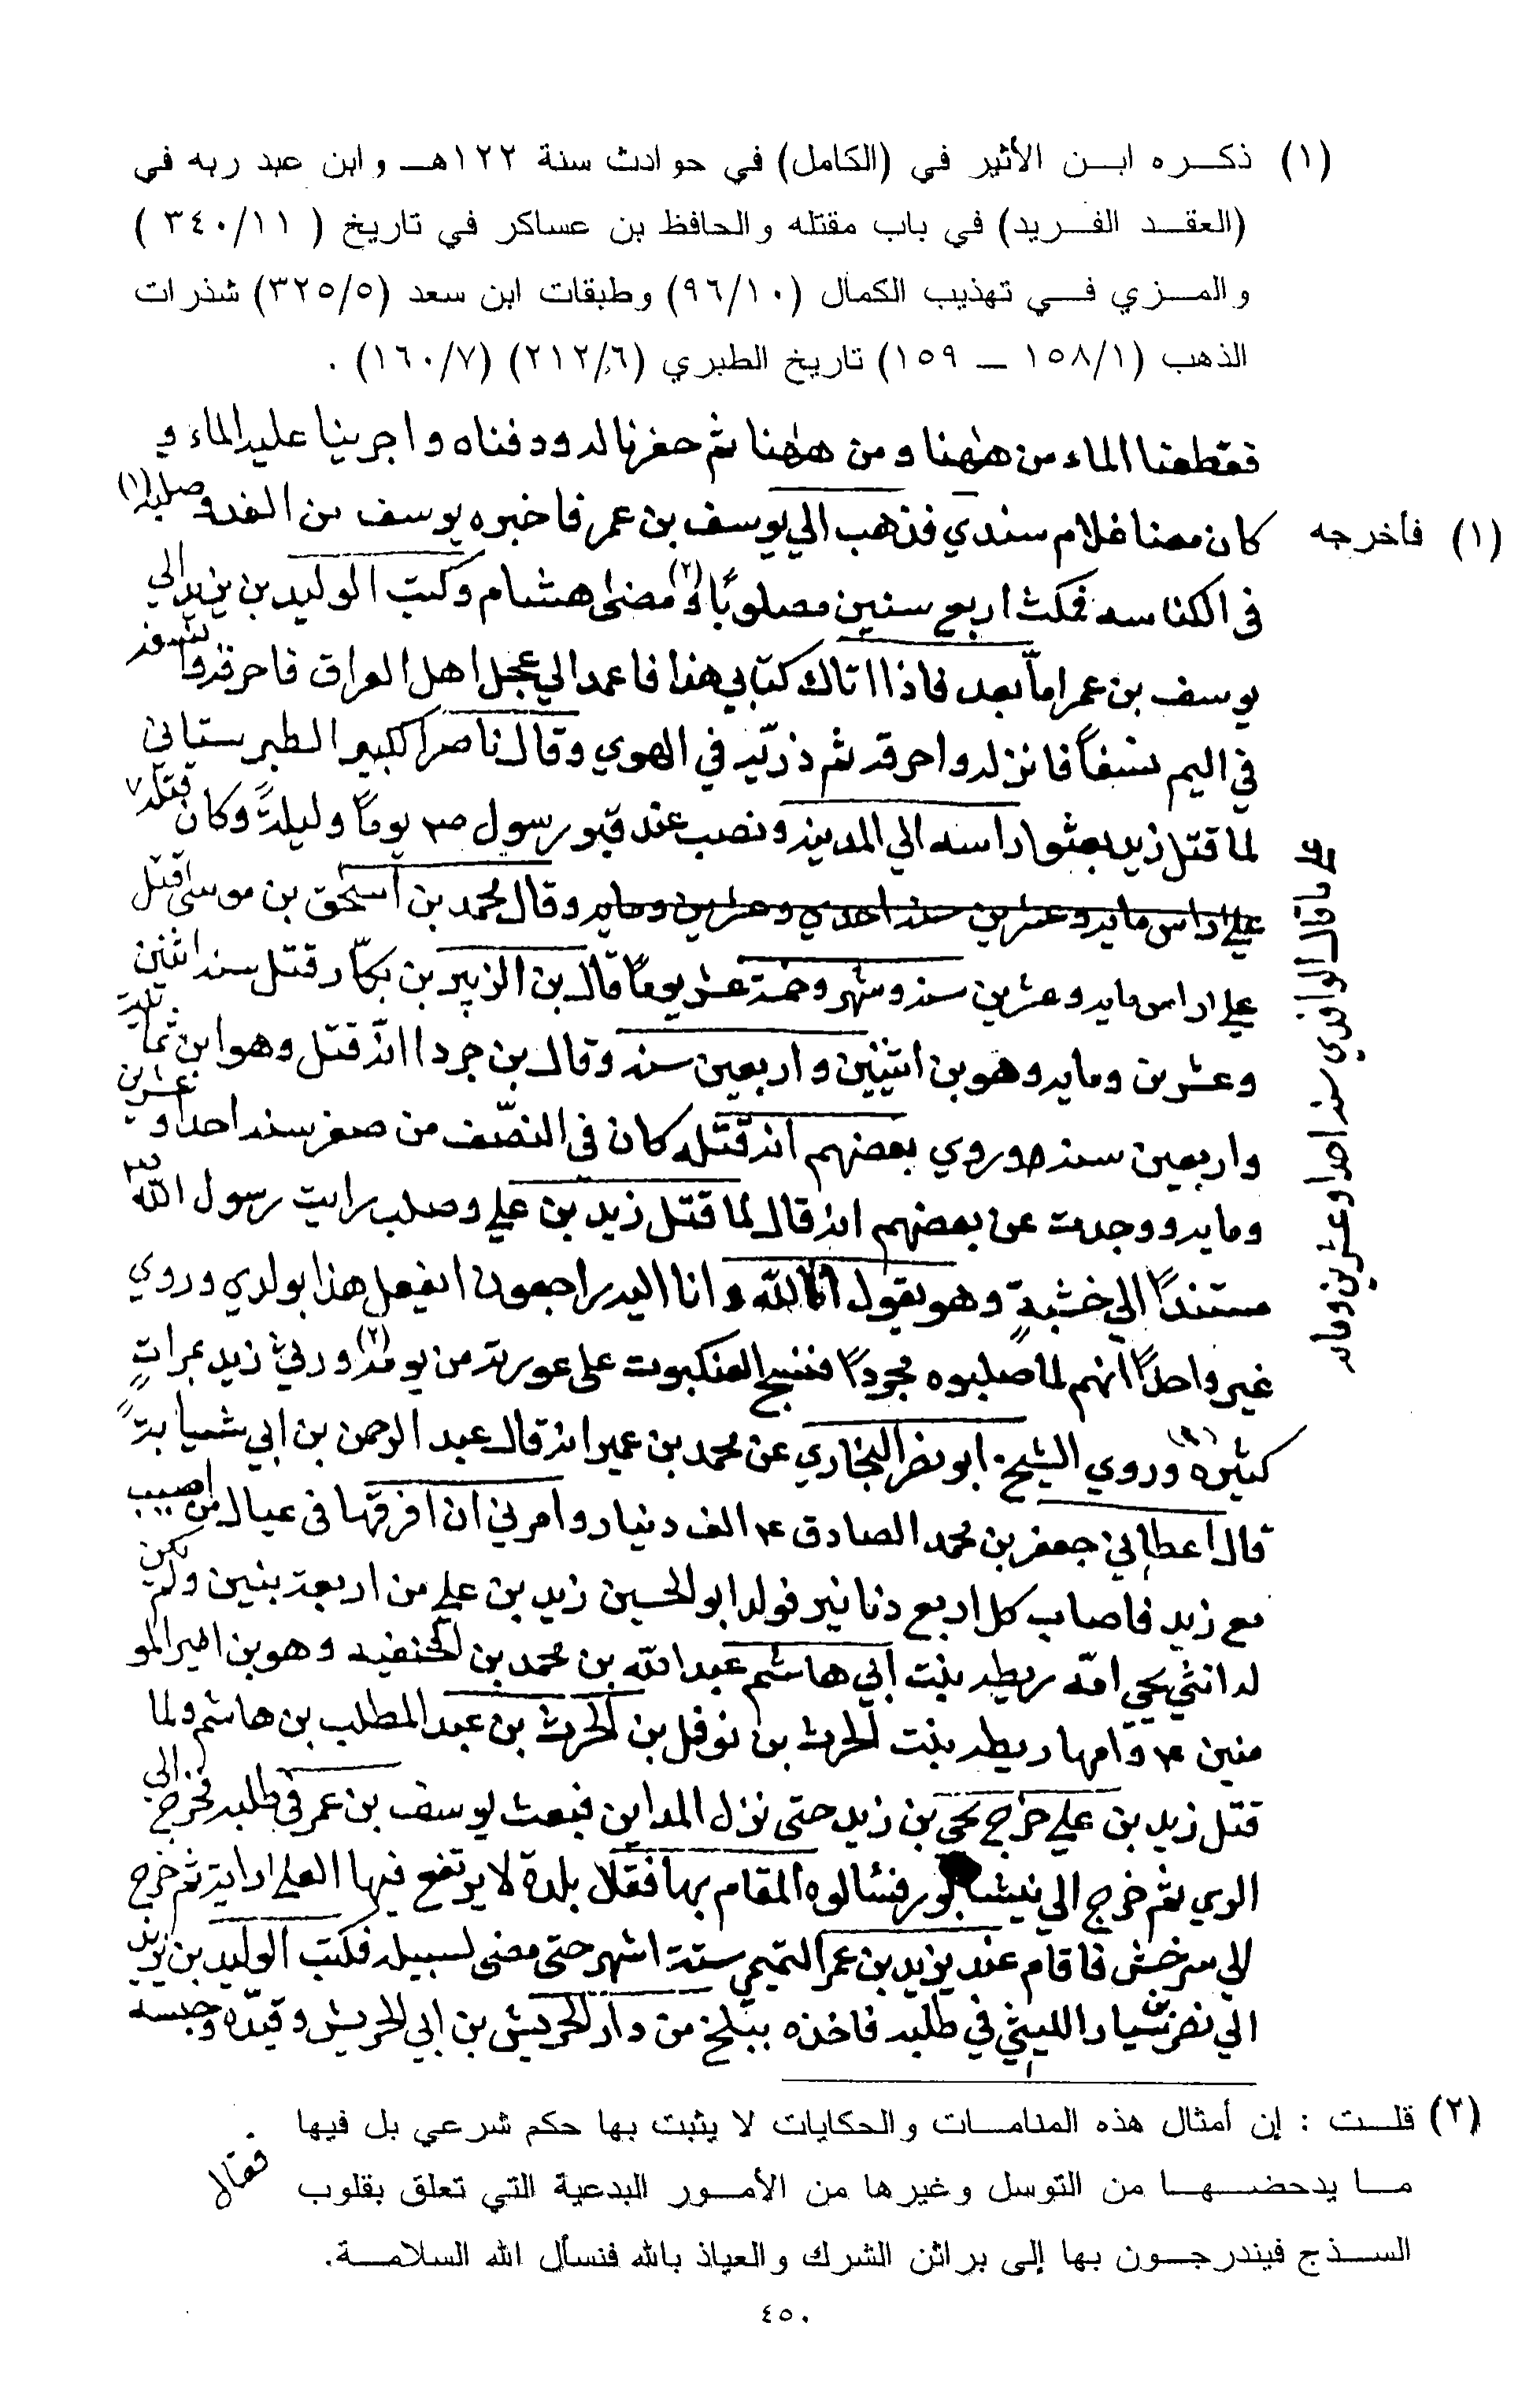 (١) ذكره ابن الأثير في (الكامل) في حوادث سنة ١٢٢هـ وابن عبد ربه في
(العقد الفريد) في باب مقتله والحافظ بن عساكر في تاريخ ( ٣٤٠/١١ )
والمزي في تهذيب الكمال (٩٦/١٠) وطبقات ابن سعد (٣٢٥/٥) شذرات
الذهب (١٥٨/١ – ١٥٩) تاريخ الطبري (٢١٢/٦) (١٦٠/٧) .
فقطعنا الماء من هٰهنا ومن هٰهنا ثم حفرنا له ودفناه واجرينا عليه الماء و
كان معنا غلام سندي فذهب الي يوسف بن عمر فاخبره يوسف من الغد وصلبه (١)
(١) فأخرجه
في الكناسه فمكث اربع سنين مصلوبًا (٢) ومضىٰ هشام وكتب الوليد بن يزيد الي
يوسف بن عمر امّا بعد فاذا اتاك كتابي هذا فاعمد الي عجل اهل العراق فاحرقه
في اليم نسفاً فانزله واحرقه ثم ذرّيه في الهوي وقال ناصر الكبير الطبرستاني
لما قتل زيد بعثوا راسه الي المدينه ونصب عند قبر رسول ص يوماً وليلةً وكان قتله
علي اراس مايه وعشرين سنه احدي وعشرين ومايه وقال محمد بن اسحق بن موسىٰ قتل
علي اراس مايه وعشرين سنه وشهر وخمسة عشر يومًا قال بن الزبير بن بكّار قتل سنه اثنين
وعشرين ومايه وهو بن اثنين واربعين سنه وقال بن جرد انّه قتل وهو ابن ثمانية
واربعين سنه وروي بعضهم انه قتله كان في النصّف من صفر سنه احدا وعشرين
ومايه ووجدت عن بعضهم انه قال لما قتل زيد بن علي وصلب رايت رسول الله ص
مستنداً الي خشبةٍ وهو يقول انا لله وانا اليه راجعون ايفعل هذا بولدي وروي
غير واحداً انهم لما صلبوه مجرداً فنسج العنكبوت على عورته من يومه (٢) ورثي زيد بمراتٍ
كثيره وروي الشيخ ابو نصر البخاري عن محمد بن عمير انه قال عبد الرحمن بن ابي شيابةً
قال اعطاني جعفر بن محمد الصادق ع الف دينار وامرني ان افرقها في عيال من اصيب
مع زيد فاصاب كل اربع دنانير فولد ابو الحسين زيد بن علي من اربعة بنين ولم تكن
له انثي يحي امّه ريطه بنت ابي هاشم عبد الله بن محمد بن الحنفيه وهو بن امير المو
منين ع وامها ريطه بنت الحرث بن نوفل بن الحرث بن عبد المطلب بن هاشم ولما
قتل زيد بن علي خرج يحي بن زيد حتى نزل المداين فبعث يوسف بن عمر في طلبه فخرج الي
الري ثم خرج الي نيشابور فسٔالوه المقام بها فقال بلدة لا يرتفع فيها العلي اراية ثم خرج
الي سرخش فاقام عند يزيد بن عمر التميمي ستة اشهر حتى مضى لسبيله فكتب الوليد بن يزيد
الي نصر بن سيار الليثي في طلبه فاخذه ببلخ من دار الحريش بن ابي الحريش وقيّده وحبسه
ما قال الواقدي سنه احدا وعشرين ومايه
(٢) قلت : إن أمثال هذه المنامات والحكايات لا يثبت بها حكم شرعي بل فيها
ما يدحضها من التوسل وغيرها من الأمور البدعية التي تعلق بقلوب
السذج فيندرجون بها إلى براثن الشرك والعياذ بالله فنسأل الله السلامة.
فقال
٤٥٠